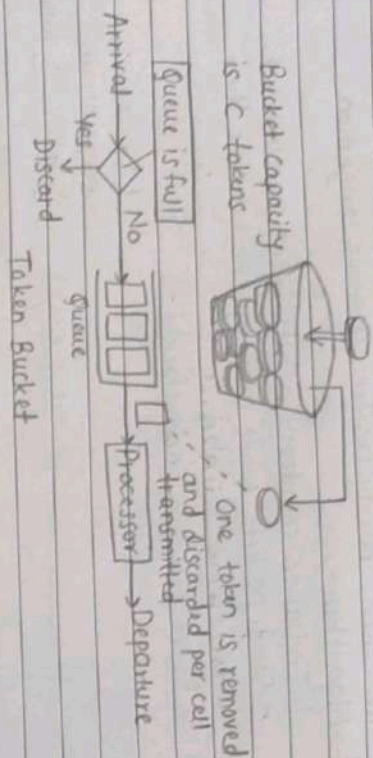 Bucket capacity
is C tokens
One token is removed
and discarded per cell
transmitted
Queue is full
Arrival
No
Processor
Departure
Yes
Discard
Queue
Token Bucket